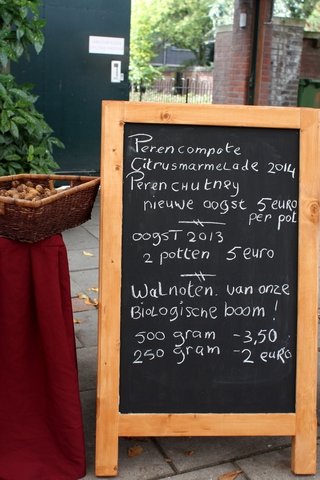 Perencompote
Citrusmarmelade 2014
Perenchutney
nieuwe oogst 5 euro
per pot
oogst 2013
2 potten 5 euro
Walnoten van onze
Biologische boom!
500 gram - 3,50
250 gram - 2 euro